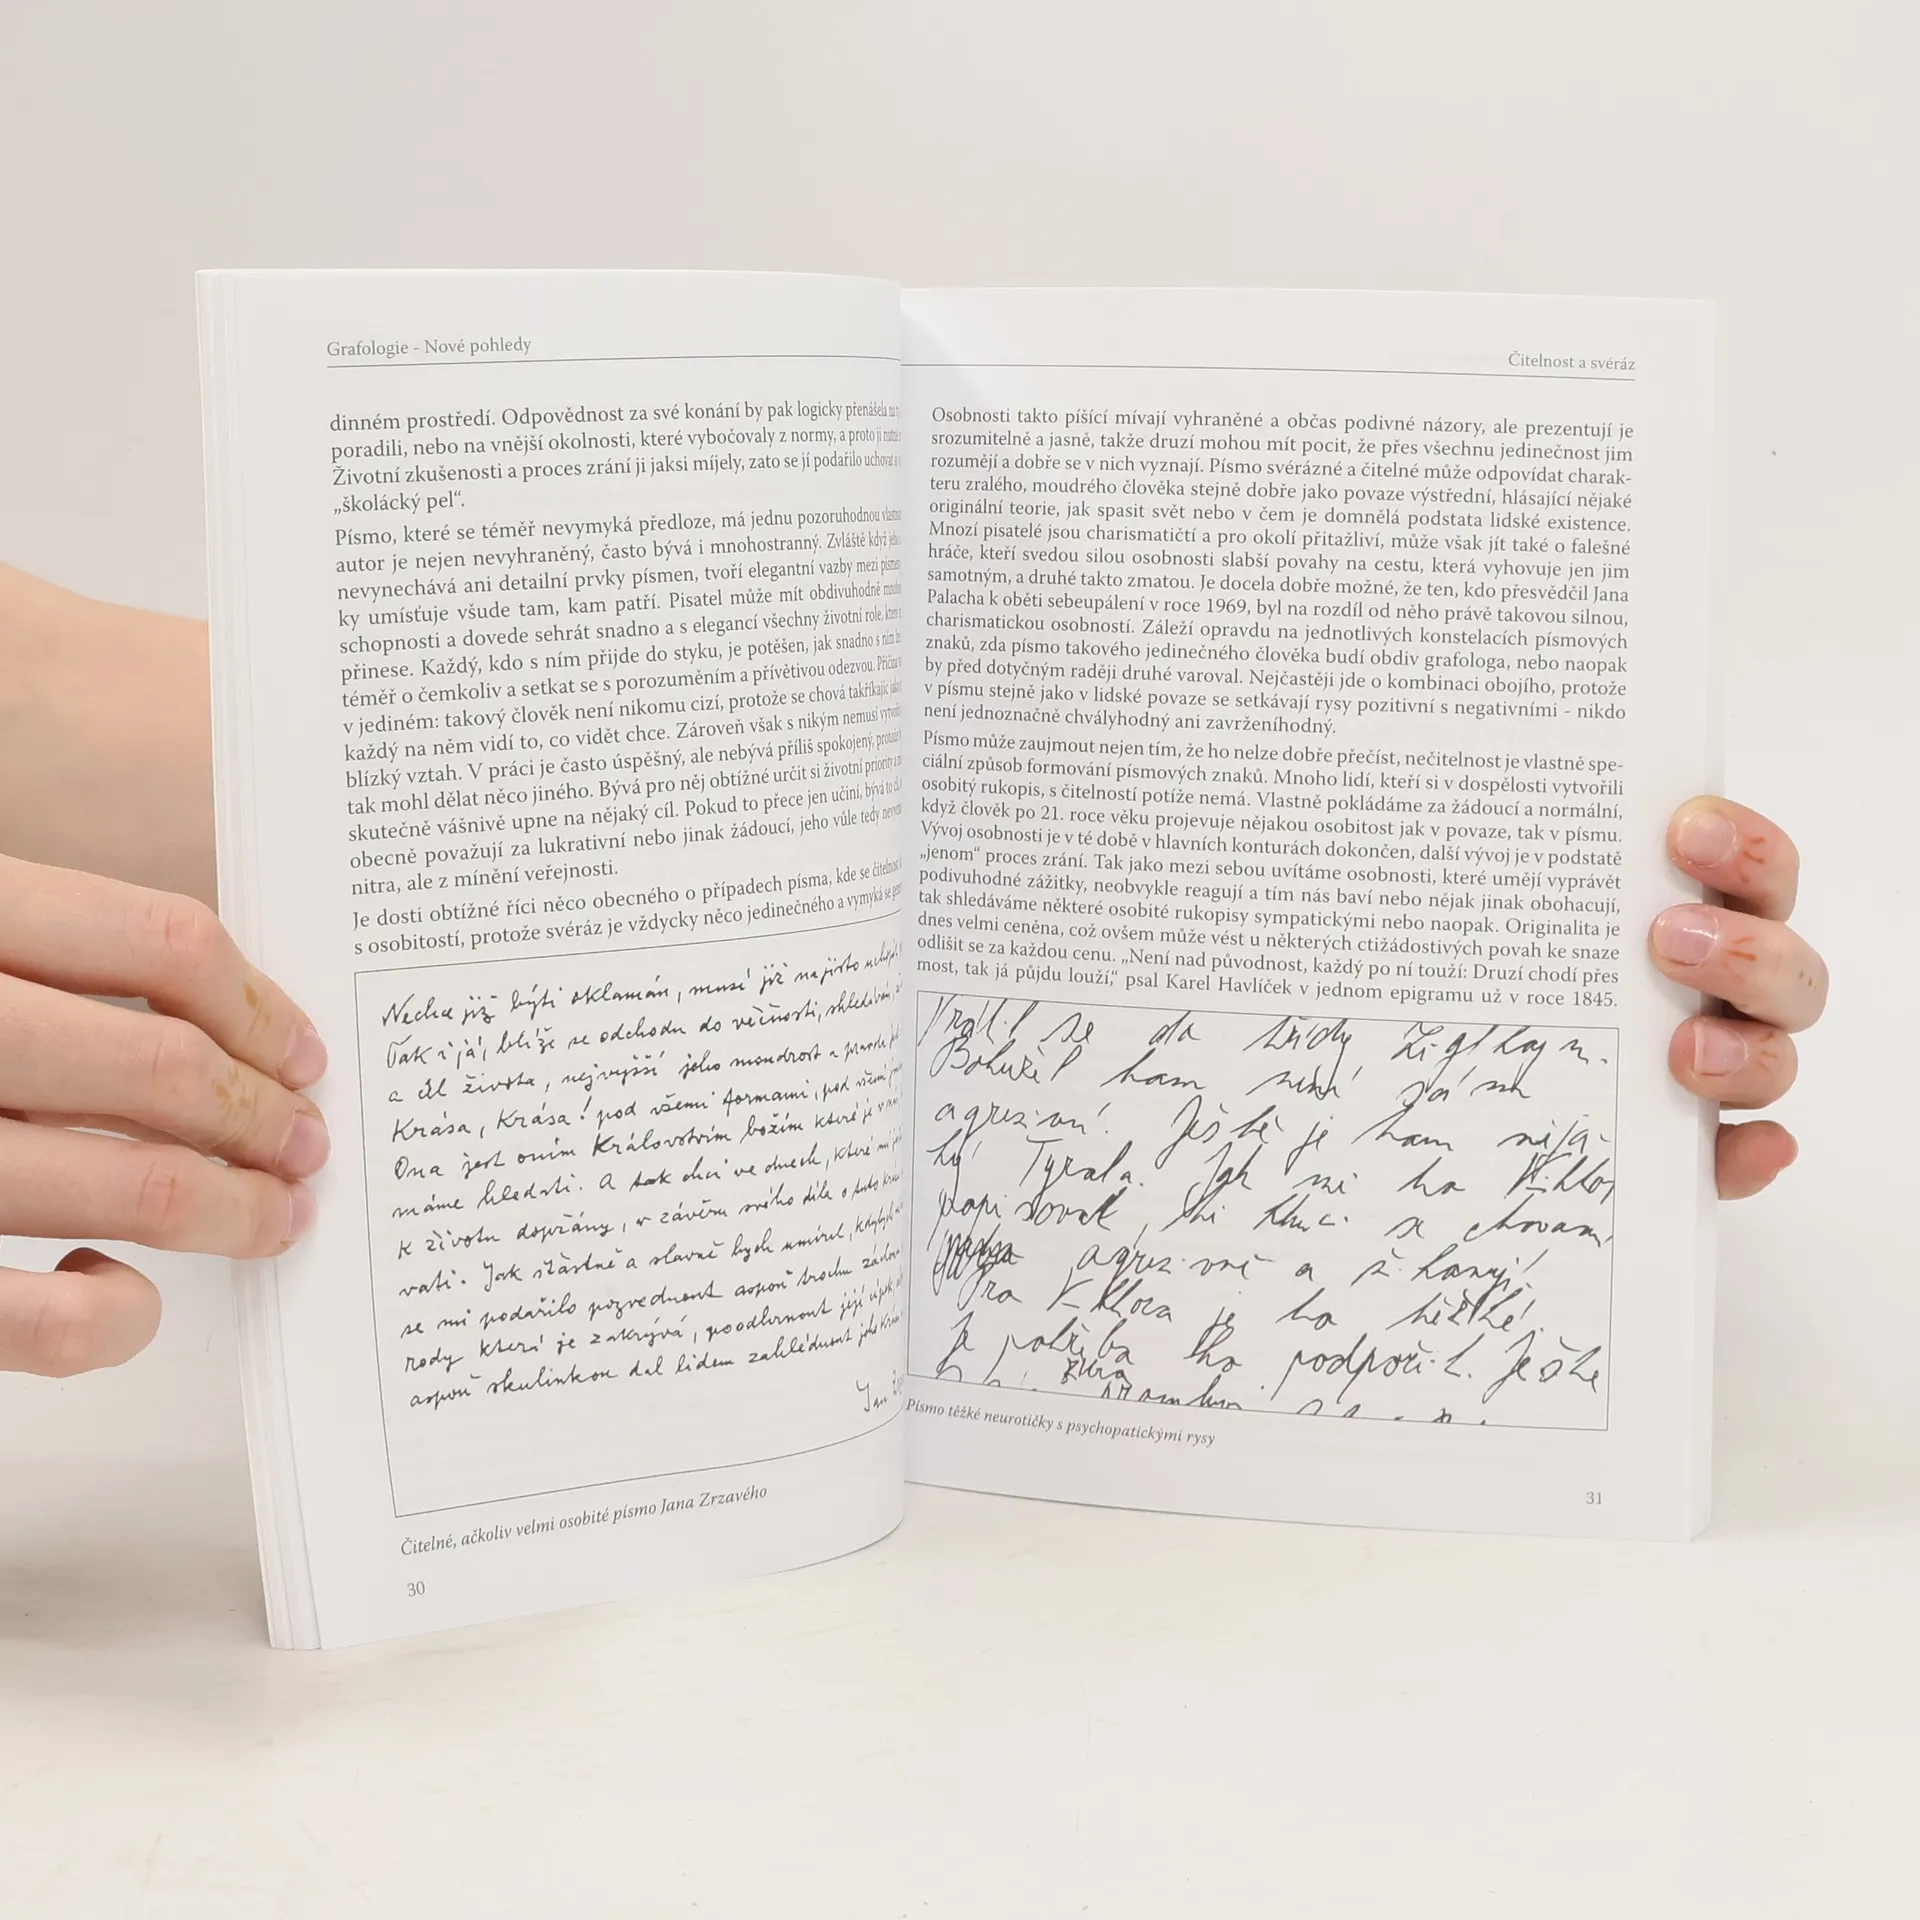 Grafologie - Nové pohledy
dinném prostředí. Odpovědnost za své konání by pak logicky přenášela na
poradili, nebo na vnější okolnosti, které vybočovaly z normy, a proto ji
Životní zkušenosti a proces zrání ji jaksi míjely, zato se jí podařilo uchovat
„školácký pel“.
Písmo, které se téměř nevymyká předloze, má jednu pozoruhodnou
autor je nejen nevyhraněný, často bývá i mnohostranný. Zvláště když
nevynechává ani detailní prvky písmen, tvoří elegantní vazby mezi
ky umísťuje všude tam, kam patří. Pisatel může mít obdivuhodně
schopnosti a dovede sehrát snadno a s elegancí všechny životní role,
přinese. Každý, kdo s ním přijde do styku, je potěšen, jak snadno s ním
téměř o čemkoliv a setkat se s porozuměním a přívětivou odezvou.
v jediném: takový člověk není nikomu cizí, protože se chová takříkajíc
každý na něm vidí to, co vidět chce. Zároveň však s nikým nemusí
blízký vztah. V práci je často úspěšný, ale nebývá příliš spokojený,
tak mohl dělat něco jiného. Bývá pro něj obtížné určit si životní priority
skutečně vášnivě upne na nějaký cíl. Pokud to přece jen učiní, bývá to
obecně považují za lukrativní nebo jinak žádoucí, jeho vůle tedy
nitra, ale z mínění veřejnosti.
Je dosti obtížné říci něco obecného o případech písma, kde se čitelnost
s osobitostí, protože svéráz je vždycky něco jedinečného a vymyká se
Nechce již býti oklamán, musí již najisto
Tak i já, blíže se odchodu do věčnosti, shledávám,
a cíl života, nejvyšší jeho moudrost a pravda
Krása, Krása! pod všemi formami, pod všemi
Ona jest oním Královstvím božím které je v
máme hledati. A tak chci ve dnech, které mi
k životu dopřány, v závěru svého díla o tuto
vati. Jak šťastně a slavně bych umíral, kdybych
se mi podařilo pozvednout aspoň trochu
rody která je zakrývá, poodhrnout její
aspoň skulinkou dal lidem zahlédnout
Jan
Čitelné, ačkoliv velmi osobité písmo Jana Zrzavého
30
Čitelnost a svéráz
Osobnosti takto píšící mívají vyhraněné a občas podivné názory, ale prezentují je
srozumitelně a jasně, takže druzí mohou mít pocit, že přes všechnu jedinečnost jim
rozumějí a dobře se v nich vyznají. Písmo svérázné a čitelné může odpovídat charak-
teru zralého, moudrého člověka stejně dobře jako povaze výstřední, hlásající nějaké
originální teorie, jak spasit svět nebo v čem je domnělá podstata lidské existence.
Mnozí pisatelé jsou charismatičtí a pro okolí přitažliví, může však jít také o falešné
hráče, kteří svedou silou osobnosti slabší povahy na cestu, která vyhovuje jen jim
samotným, a druhé takto zmatou. Je docela dobře možné, že ten, kdo přesvědčil Jana
Palacha k oběti sebeupálení v roce 1969, byl na rozdíl od něho právě takovou silnou,
charismatickou osobností. Záleží opravdu na jednotlivých konstelacích písmových
znaků, zda písmo takového jedinečného člověka budí obdiv grafologa, nebo naopak
by před dotyčným raději druhé varoval. Nejčastěji jde o kombinaci obojího, protože
v písmu stejně jako v lidské povaze se setkávají rysy pozitivní s negativními - nikdo
není jednoznačně chvályhodný ani zavrženíhodný.
Písmo může zaujmout nejen tím, že ho nelze dobře přečíst, nečitelnost je vlastně spe-
ciální způsob formování písmových znaků. Mnoho lidí, kteří si v dospělosti vytvořili
osobitý rukopis, s čitelností potíže nemá. Vlastně pokládáme za žádoucí a normální,
když člověk po 21. roce věku projevuje nějakou osobitost jak v povaze, tak v písmu.
Vývoj osobnosti je v té době v hlavních konturách dokončen, další vývoj je v podstatě
„jenom“ proces zrání. Tak jako mezi sebou uvítáme osobnosti, které umějí vyprávět
podivuhodné zážitky, neobvykle reagují a tím nás baví nebo nějak jinak obohacují,
tak shledáváme některé osobité rukopisy sympatickými nebo naopak. Originalita je
dnes velmi ceněna, což ovšem může vést u některých ctižádostivých povah ke snaze
odlišit se za každou cenu. „Není nad původnost, každý po ní touží: Druzí chodí přes
most, tak já půjdu louží,“ psal Karel Havlíček v jednom epigramu už v roce 1845.
Vrátil se do třídy
Bohužel tam není sám
agresivní. Ještě je tam něja-
ký Tyrala. Jak mi ho
popisoval, ti kluci se chovaní
agresivně a šikanují.
Pro je to těžké.
Je potřeba ho podpořit. Ještě
Písmo těžké neurotičky s psychopatickými rysy
31